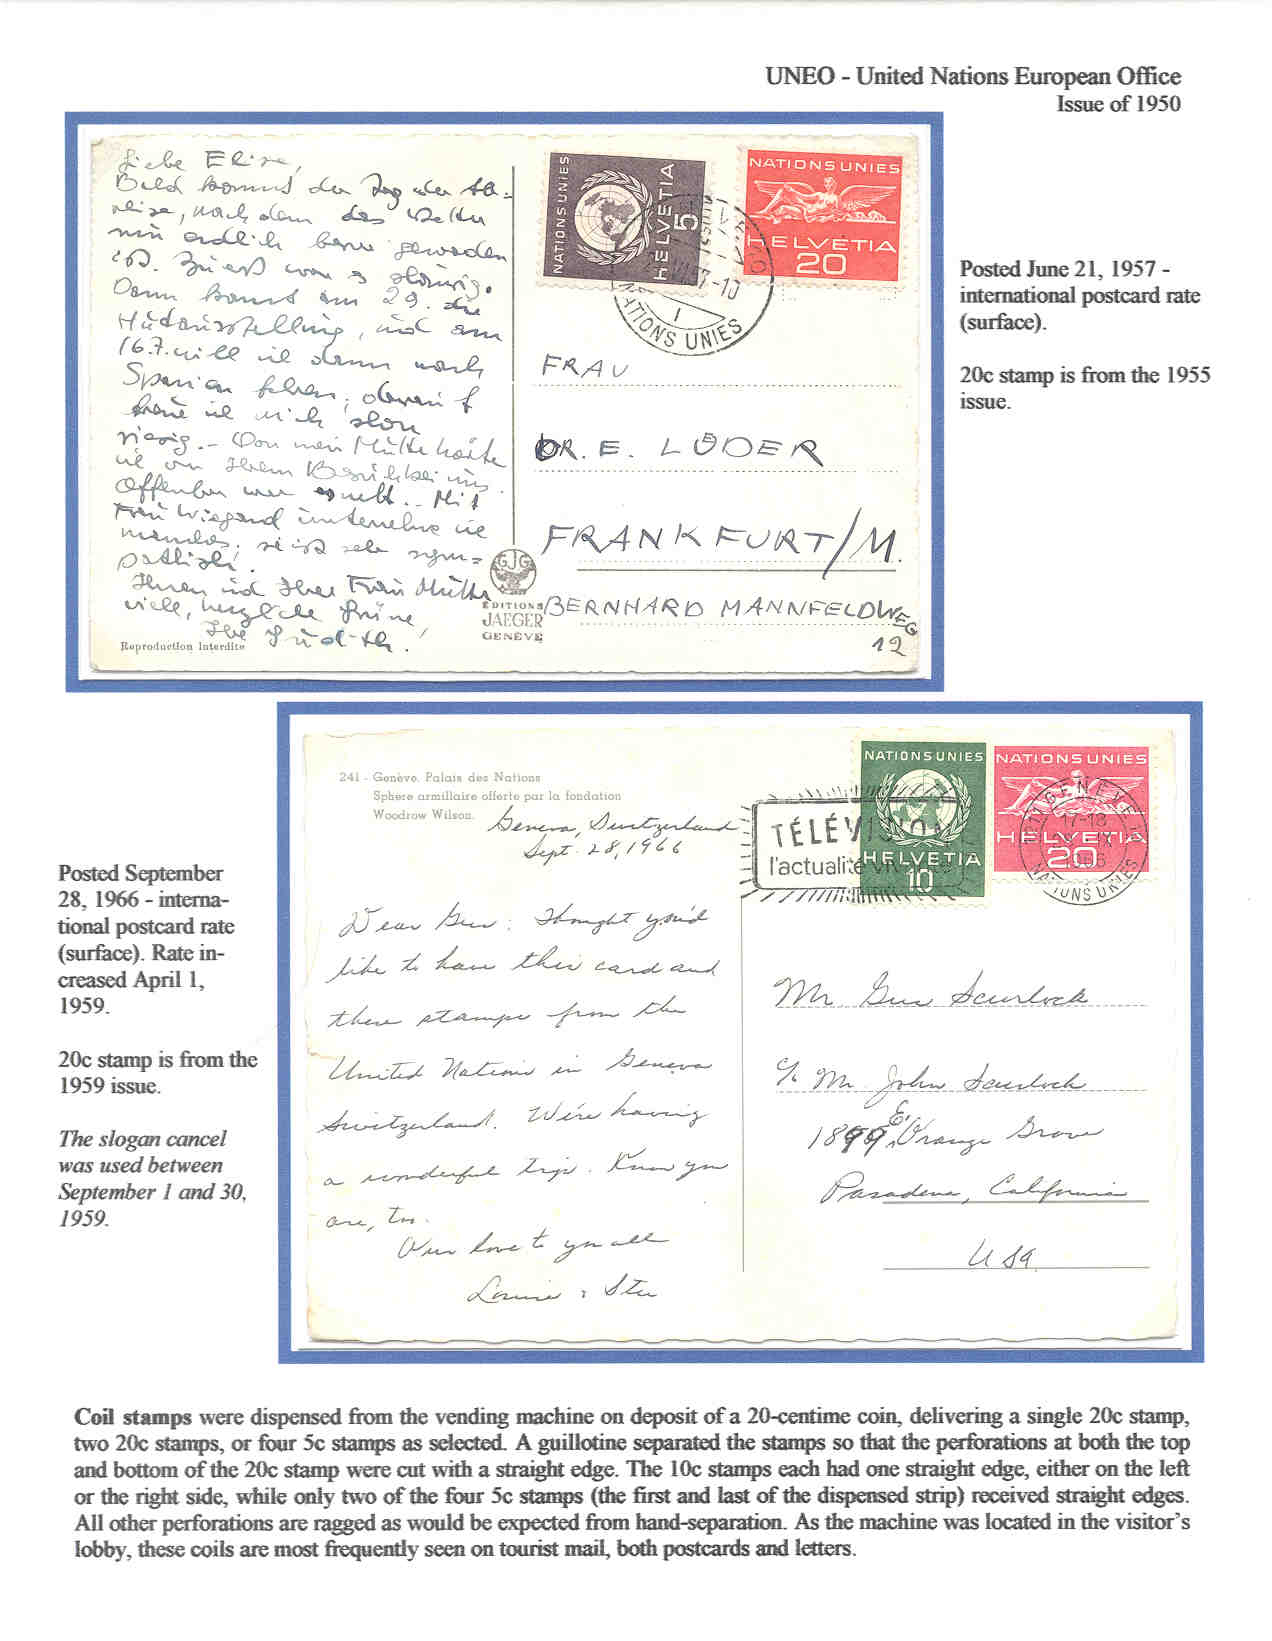 UNEO - United Nations European Office
Issue of 1950
Liebe Elise,
Bald kommt der Tag der Ab=
reise, nach dem das Wetter
nun endlich
ist. Zuerst war es
Dann kommt am 29. die
Hutausstellung, und am
16.7. will ich dann nach
Spanien fahren, darauf
freue ich mich schon
riesig. - Von mein Mutter hörte
ich von Ihrem Besuch bei uns.
Offenbar war es nett. Mit
Frau Wiegand unternehme ich
manches, sie ist sehr sym=
pathisch!
Ihnen und Ihrer Frau Mutter
viele, herzliche Grüsse,
Ihre Judith.
Reproduction interdite
GJG
EDITIONS
JAEGER
GENÈVE
NATIONS UNIES
HELVETIA
5
NATIONS UNIES
HELVETIA
20
NATIONS UNIES
FRAU
DR. E. LÜDER
FRANKFURT/M.
BERNHARD MANNFELDWEG
12
Posted June 21, 1957 -
international postcard rate
(surface).
20c stamp is from the 1955
issue.
241 - Genève. Palais des Nations
Sphere armillaire offerte par la fondation
Woodrow Wilson.
Geneva, Switzerland
Sept. 28, 1966
Dear Gus: Thought you'd
like to have this card and
these stamps from the
United Nations in Geneva
Switzerland. We're having
a wonderful trip. Know you
are, too.
Our love to you all
Louise & Stu
TÉLÉVISION
l'actualité
NATIONS UNIES
HELVETIA
10
NATIONS UNIES
HELVETIA
20
GENÈVE
17-18
1966
NATIONS UNIES
Mr. Gus Scurlock
c/o Mr. John Scurlock
1899 E. Orange Grove
Pasadena, California
USA
Posted September
28, 1966 - interna-
tional postcard rate
(surface). Rate in-
creased April 1,
1959.
20c stamp is from the
1959 issue.
The slogan cancel
was used between
September 1 and 30,
1959.
Coil stamps were dispensed from the vending machine on deposit of a 20-centime coin, delivering a single 20c stamp,
two 20c stamps, or four 5c stamps as selected. A guillotine separated the stamps so that the perforations at both the top
and bottom of the 20c stamp were cut with a straight edge. The 10c stamps each had one straight edge, either on the left
or the right side, while only two of the four 5c stamps (the first and last of the dispensed strip) received straight edges.
All other perforations are ragged as would be expected from hand-separation. As the machine was located in the visitor's
lobby, these coils are most frequently seen on tourist mail, both postcards and letters.